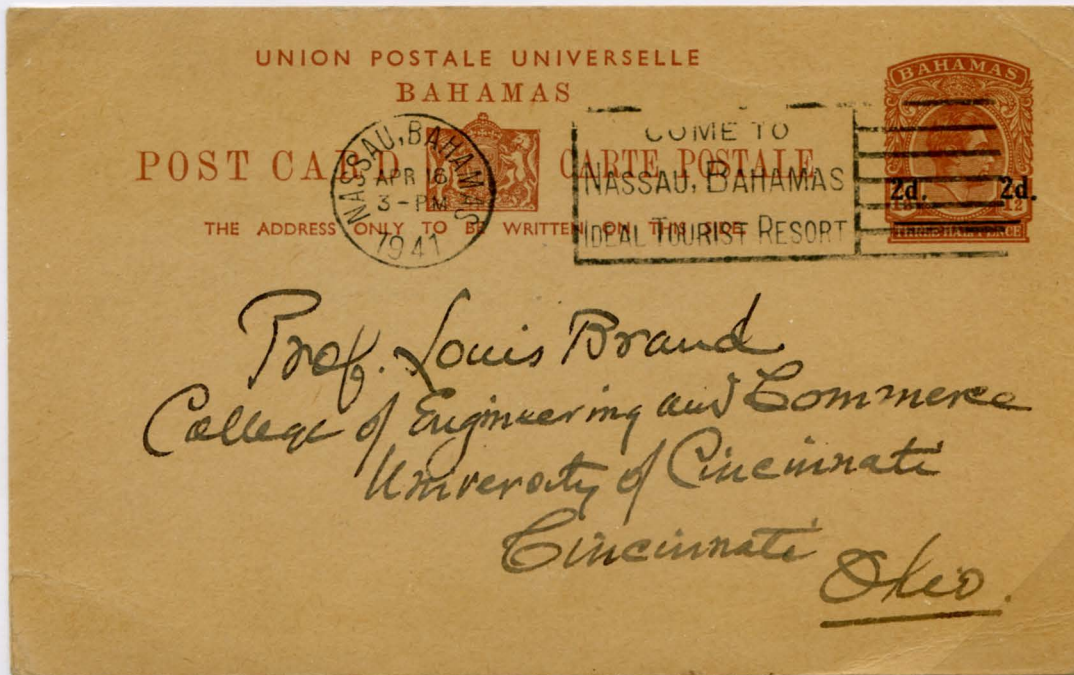 UNION POSTALE UNIVERSELLE
BAHAMAS
POST CARD CARTE POSTALE
THE ADDRESS ONLY TO BE WRITTEN ON THIS SIDE
NASSAU, BAHAMAS
APR 16
3 - PM
1941
COME TO
NASSAU, BAHAMAS
IDEAL TOURIST RESORT
BAHAMAS
2d. 2d.
Prof. Louis Brand
College of Engineering and Commerce
University of Cincinnati
Cincinnati
Ohio.